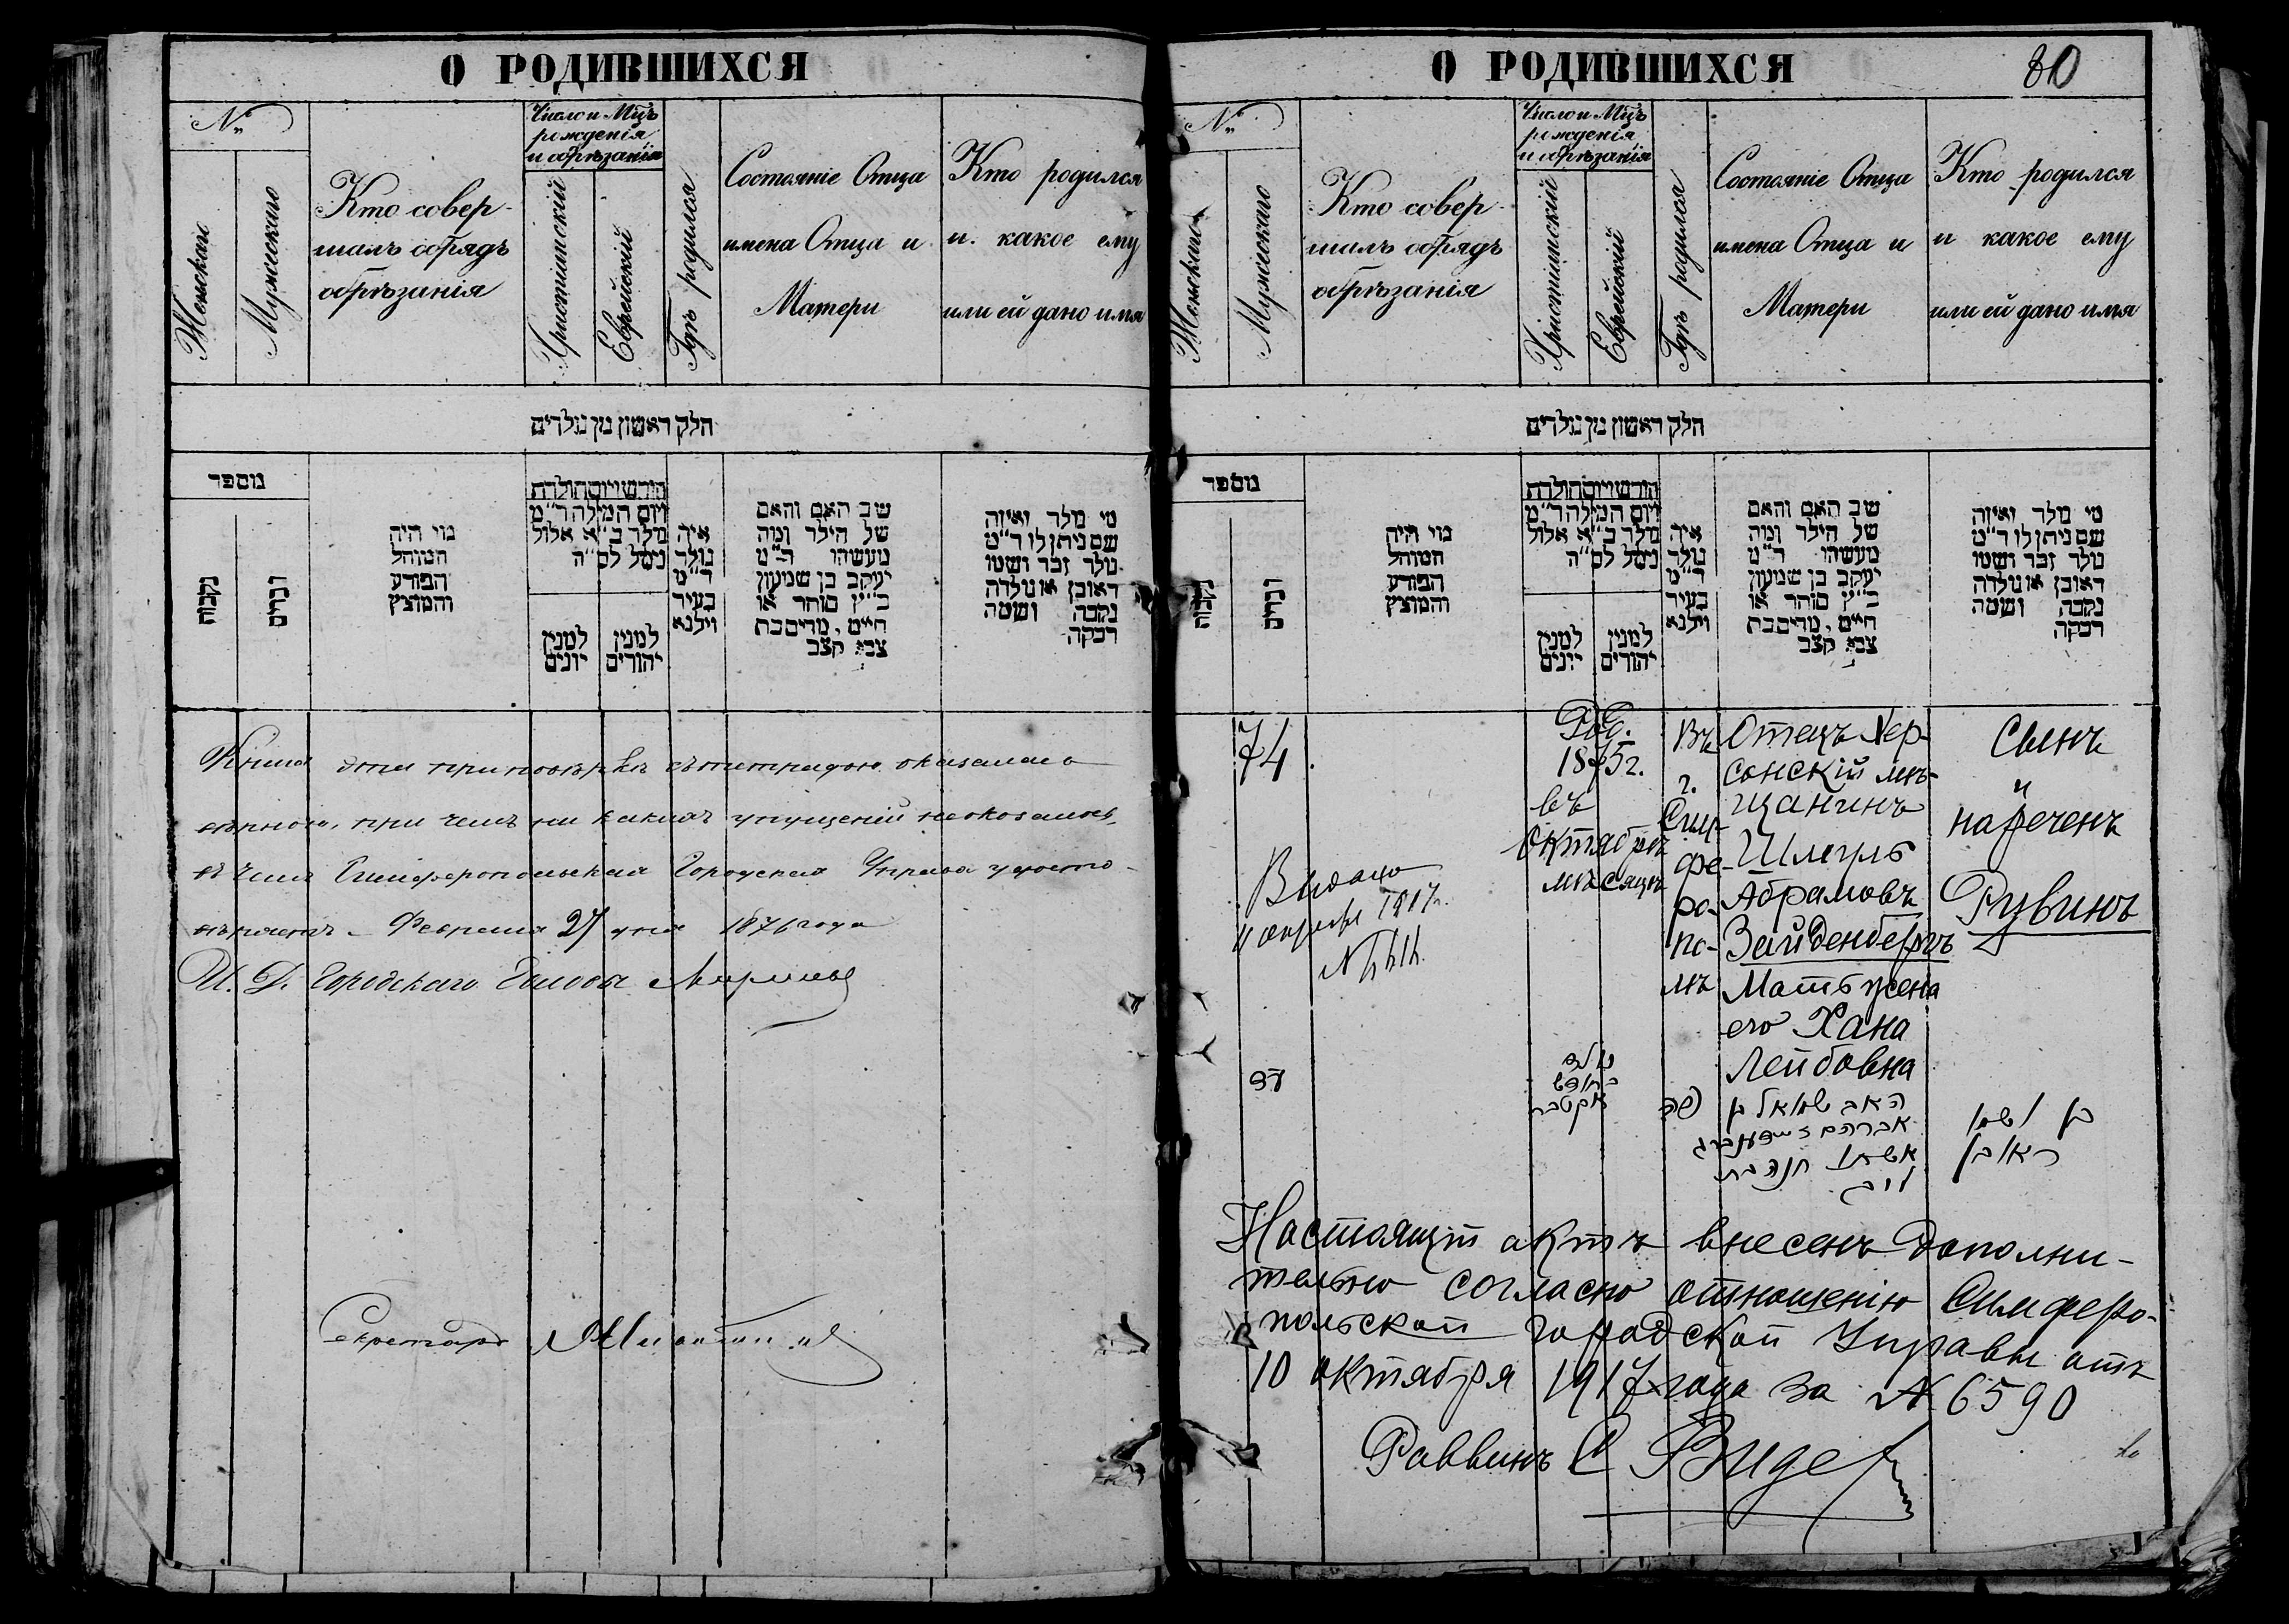 О РОДИВШИХСЯ
№
Женскаго
Мужескаго
Кто совер-
шалъ обрядъ
обрѣзанія
Число и Мцъ
рожденія
и обрѣзанія
Христіанскій
Еврейскій
Гдѣ родился
Состояніе Отца
имена Отца и
Матери
Кто родился
и какое ему
или ей дано имя
חלק ראשון מן נולדים
מספר
נקבות
זכרים
מי היה
המוהל
הפורע
והמוצץ
חודש ויום הולדת
ויום המילה ר״מ
נולד כ״א אלול
נימל לס״ה
למנין
יונים
למנין
יהודים
איה
נולד
ר״מ
בעיר
וילנא
שב האם והאם
של הילד ומה
מעשהו ר״מ
יעקב בן שמעון
כ״ץ סוחר או
חייט, מרים בת
צבי קצב
מי נולד ואיזה
שם ניתן לו ר״מ
נולד זכר ושמו
ראובן או נולדה
נקבה ושמה
רבקה
Книга эта при повѣркѣ съ тетрадью оказалась
вѣрною, при чемъ ни какихъ упущеній неоказалось,
въ чемъ Симферопольская Городская Управа удосто-
вѣряетъ. Февраля 27 дня 1876 года
И. Д. Городскаго Головы
Секретарь
О РОДИВШИХСЯ
80
№
Женскаго
Мужескаго
Кто совер-
шалъ обрядъ
обрѣзанія
Число и Мцъ
рожденія
и обрѣзанія
Христіанскій
Еврейскій
Гдѣ родился
Состояніе Отца
имена Отца и
Матери
Кто родился
и какое ему
или ей дано имя
חלק ראשון מן נולדים
מספר
נקבות
זכרים
מי היה
המוהל
הפורע
והמוצץ
חודש ויום הולדת
ויום המילה ר״מ
נולד כ״א אלול
נימל לס״ה
למנין
יונים
למנין
יהודים
איה
נולד
ר״מ
בעיר
וילנא
שב האם והאם
של הילד ומה
מעשהו ר״מ
יעקב בן שמעון
כ״ץ סוחר או
חייט, מרים בת
צבי קצב
מי נולד ואיזה
שם ניתן לו ר״מ
נולד זכר ושמו
ראובן או נולדה
נקבה ושמה
רבקה
74.
Выдано
1917г.
1875г.
въ
Октябрѣ
мѣсяцѣ
Въ
г.
Сим-
фе-
ро-
по-
лѣ
Отецъ Хер-
сонскій мѣ-
щанинъ
Шмуль
Абрамовъ
Зайденбергъ
Мать жена
его Хана
Лейбовна
Сынъ
и
нареченъ
Рувинъ
עד
נולד
בחודש
אקטבר
פה
האב שמואל בן
אברהם זיידענברג
אשתו חנה בת
לייב
בן ושמו
ראובן
Настоящій актъ внесенъ дополни-
тельно согласно отношенію Симферо-
польской Городской Управы отъ
10 октября 1917 года за № 6590
Раввинъ